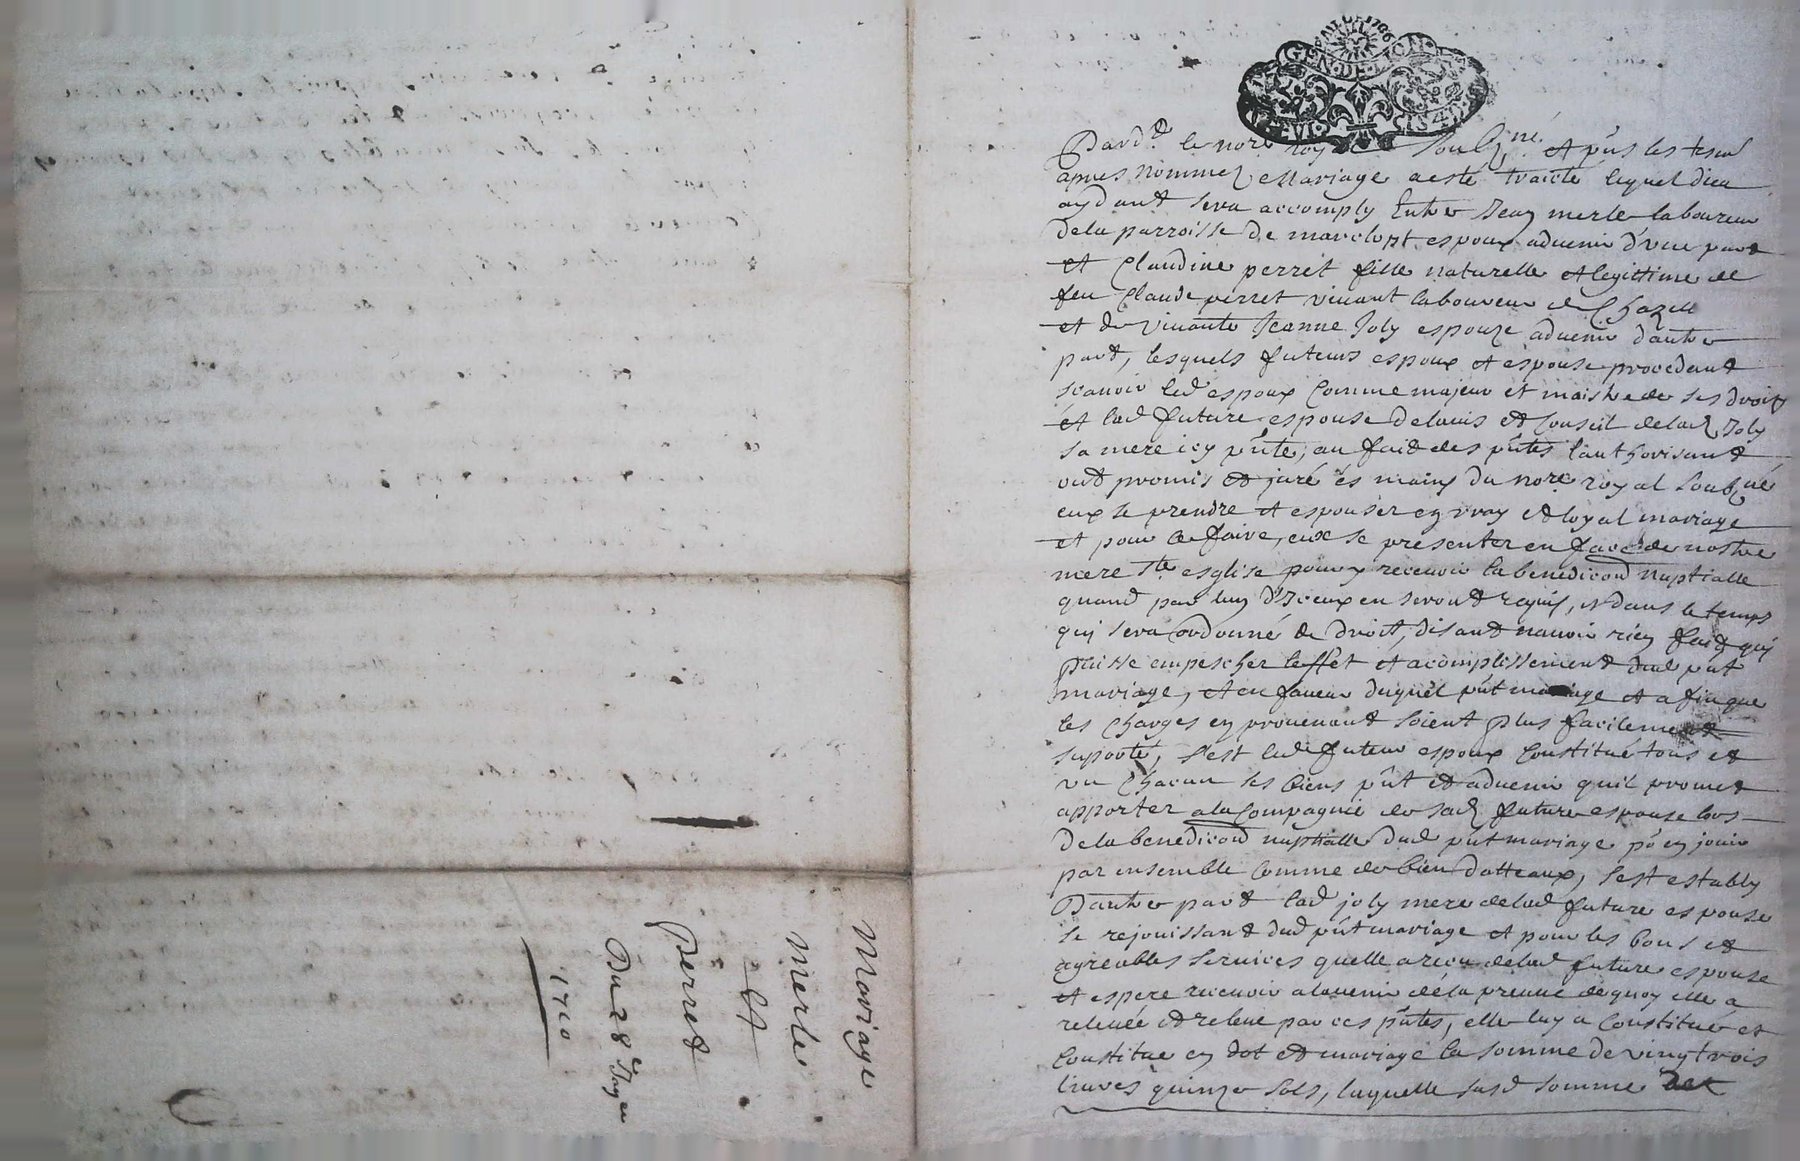 Mariage
Merle
Et
Perret
Du 28e
1710
GEN DE LION
Pard.t le nore roy soubz.né et pñs les tesm
apres nommez Mariage a esté traicté lequel dieu
aydant sera accomply Entre Jean merle laboureur
dela parroisse de marclopt espoux aduenir d'vne part
et Claudine perret fille naturelle et legittime de
feu Claude perret viuant laboureur de Chazelle
et de viuante Jeanne Joly espouze aduenir d'autre
part, lesquels futeurs espoux et espouse procedant
scauoir led espoux Comme majeur et maistre de ses droits
et lad future espouse de lauis et Conseil delad Joly
sa mere icy pñte, au faict des pñtes lauthorisant
ont promis et juré és mains du nore royal soubzné
eux se prendre et espouser en vray et loyal mariage
et pour ce faire, eux se presenter en face de nostre
mere Ste esglise pour y receuoir la benediõn nuptialle
quand par lun d'Iceux en seront requis, et dans le temps
qui sera ordonné de droit, disant nauoir rien faict qui
puisse empescher leffet et acomplissement dud pñt
mariage, et en faueur duquel pñt mariage et afin que
les Charges en prouenant soient plus facilement
suporté, s'est led futeur espoux Constitué tous et
vn Chacun ses biens pñt et aduenir quil promet
apporter a la Compagnie de sad future espouse lors
de la benediõn nuptialle dud pñt mariage po en jouir
par ensemble Comme de bien dotteaux, s'est estably
D'autre part lad joly mere delad future espouse
se rejouissant dud pñt mariage et pour les bons et
agreables seruices quelle a receu delad future espouse
et espere receuoir a laduenir de la preuue de quoy elle a
releuée et releue par ces pñtes, elle luy a Constitué et
Constitue en dot et mariage la somme de vingt trois
liures quinze sols, laquelle susd somme